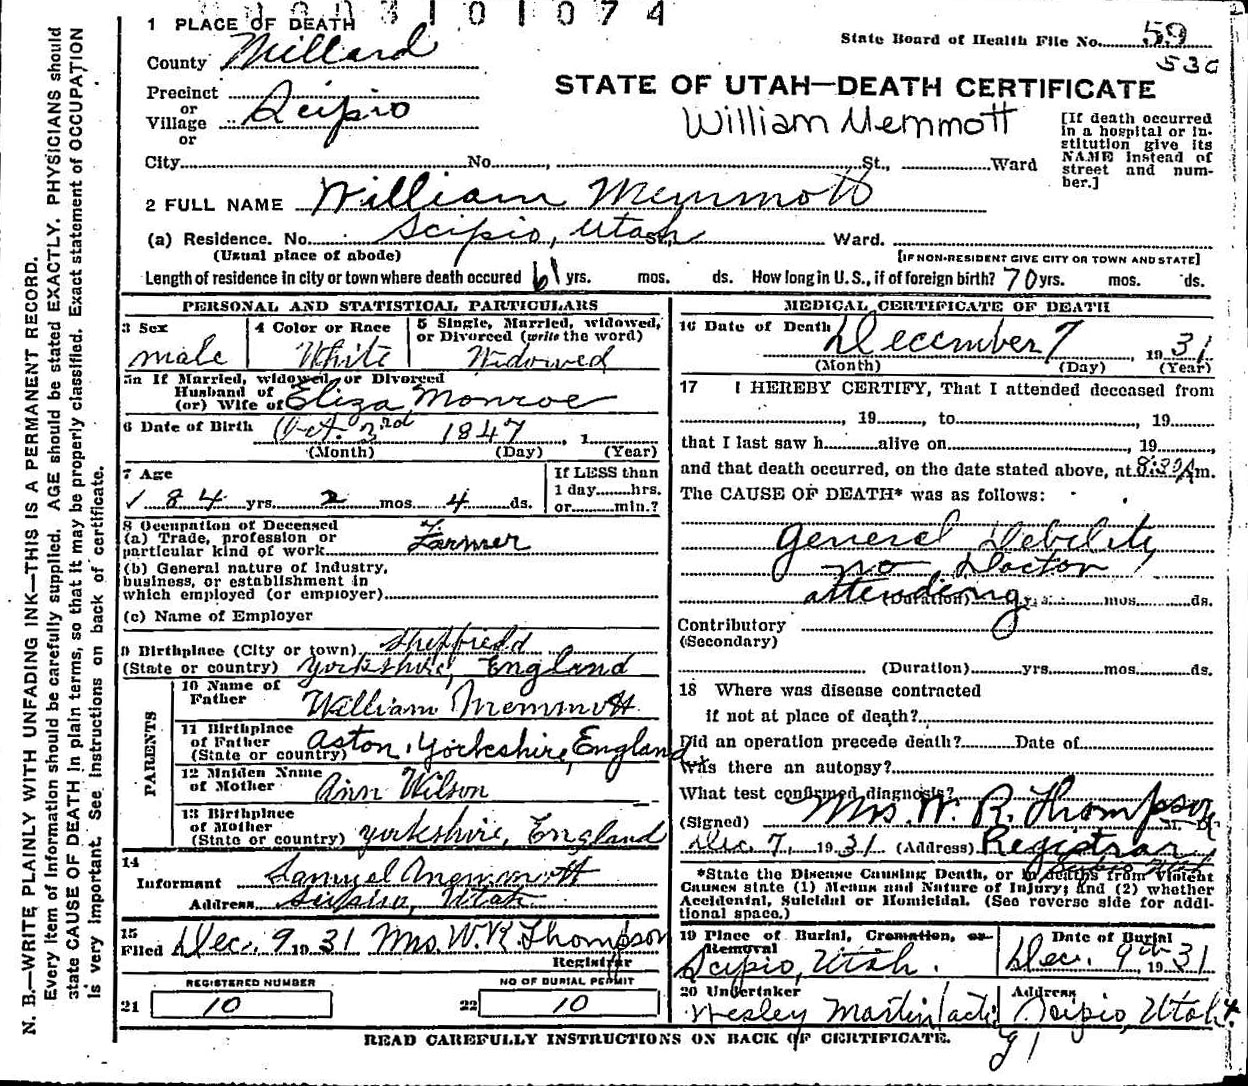 3101074
1 PLACE OF DEATH
State Board of Health File No. 59
530
County Millard
STATE OF UTAH—DEATH CERTIFICATE
Precinct
or
Village Scipio
or
William Memmott
[If death occurred
in a hospital or in-
stitution give its
NAME instead of
street and num-
ber.]
City No. , St., Ward
2 FULL NAME William Memmott
(a) Residence. No. Scipio, Utah St., Ward.
(Usual place of abode) [IF NON-RESIDENT GIVE CITY OR TOWN AND STATE]
Length of residence in city or town where death occured 61 yrs. mos. ds. How long in U.S., if of foreign birth? 70 yrs. mos. ds.
PERSONAL AND STATISTICAL PARTICULARS
3 Sex
male
4 Color or Race
White
5 Single, Married, widowed,
or Divorced (write the word)
Widowed
5a If Married, widowed, or Divorced
Husband of
(or) Wife of Eliza Monroe
6 Date of Birth Oct. 3rd 1847, 1
(Month) (Day) (Year)
7 Age
84 yrs 2 mos 4 ds.
If LESS than
1 day hrs.
or min.?
8 Occupation of Deceased
(a) Trade, profession or
particular kind of work Farmer
(b) General nature of industry,
business, or establishment in
which employed (or employer)
(c) Name of Employer
9 Birthplace (City or town) Sheffield
(State or country) Yorkshire, England
PARENTS
10 Name of
Father William Memmott
11 Birthplace
of Father
(State or country) Aston, Yorkshire, England
12 Maiden Name
of Mother Ann Wilson
13 Birthplace
of Mother
(State or country) Yorkshire, England
14
Informant Samuel Memmott
Address Scipio, Utah
15
Filed Dec. 9 1931 Mrs. W.R. Thompson
Registrar
REGISTERED NUMBER
21 10
NO OF BURIAL PERMIT
22 10
MEDICAL CERTIFICATE OF DEATH
16 Date of Death December 7, 1931
(Month) (Day) (Year)
17 I HEREBY CERTIFY, That I attended deceased from
, 19 , to , 19
that I last saw h alive on , 19
and that death occurred, on the date stated above, at 8:30 A m.
The CAUSE OF DEATH* was as follows:
General Debility
no Doctor
attending (Duration) yrs. mos. ds.
Contributory
(Secondary)
(Duration) yrs. mos. ds.
18 Where was disease contracted
if not at place of death?
Did an operation precede death? Date of
Was there an autopsy?
What test confirmed diagnosis?
(Signed) Mrs. W. R. Thompson M. D.
Dec. 7, 1931 (Address) Registrar
Scipio Utah
*State the Disease Causing Death, or in deaths from Violent
Causes state (1) Means and Nature of Injury; and (2) whether
Accidental, Suicidal or Homicidal. (See reverse side for addi-
tional space.)
19 Place of Burial, Cremation, or
Removal
Scipio, Utah.
Date of Burial
Dec. 9th, 1931
20 Undertaker
Wesley Martin (acting)
Address
Scipio, Utah.
READ CAREFULLY INSTRUCTIONS ON BACK OF CERTIFICATE.
N. B.—WRITE PLAINLY WITH UNFADING INK—THIS IS A PERMANENT RECORD.
Every item of information should be carefully supplied. AGE should be stated EXACTLY. PHYSICIANS should
state CAUSE OF DEATH in plain terms, so that it may be properly classified. Exact statement of OCCUPATION
is very important. See instructions on back of certificate.